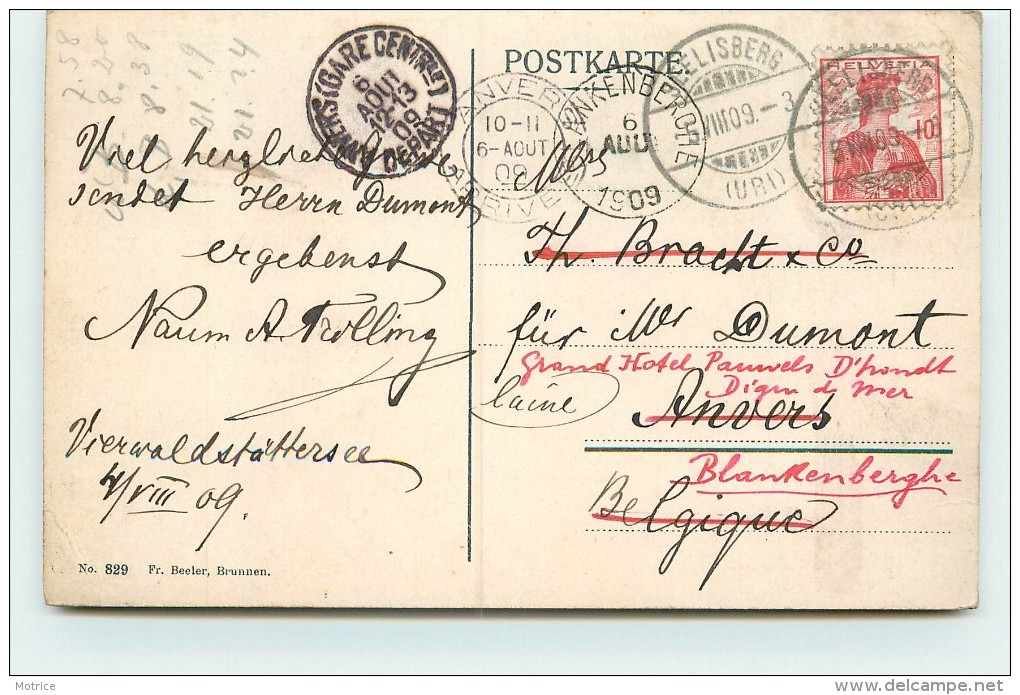 POSTKARTE.
HELVETIA
10
SEELISBERG
VIII 09.-3
(URI)
BLANKENBERGHE
6
AOUT
1909
ANVERS
10-11
6-AOUT
09
ARRIVEE
ANVERS (GARE CENTRALE)
6
AOUT
12-13
09
DEPART
7.58
8.20
8.38
21.19
21.24
Viel herzliche Grüsse
sendet Herrn Dumont
ergebenst
Naum A. Trolling
Vierwaldstättersee
4/VIII 09.
Mrs
Th. Bracht & Co
für Mr Dumont
Grand Hotel Pauwels D'hondt
Digue de mer
laine
Anvers
Blankenberghe
Belgique
No. 829 Fr. Beeler, Brunnen.
Motrice
www.delcampe.net